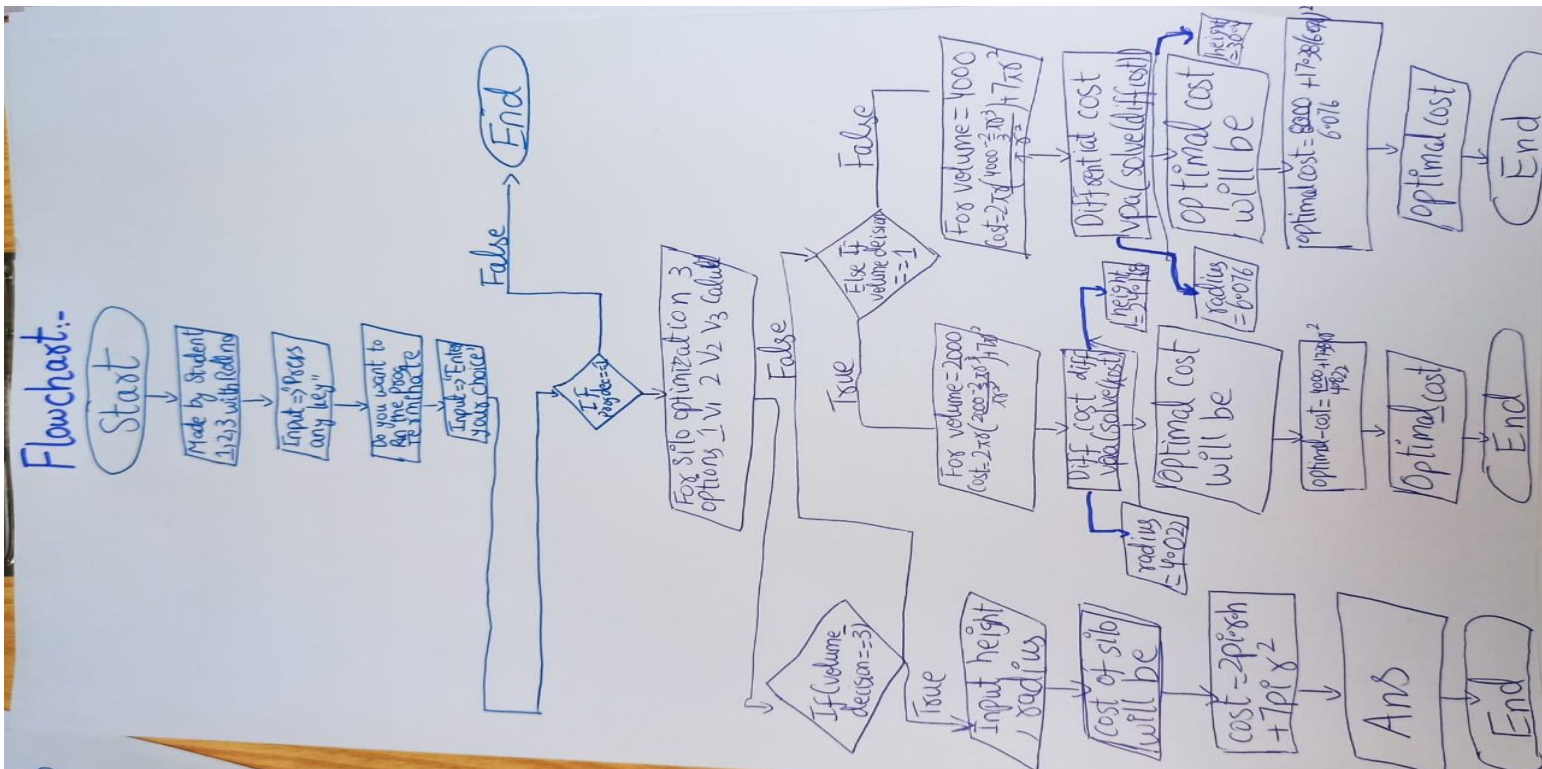 Flowchart:-
Start
Made by Student
1,2,3 with Rollno
Input=>"Press
any key"
Do you want to
Run the prog
Terminate
Input=>"Enter
your choice"
If
progdec==1
False
End
For silo optimization 3
options 1 V1 2 V2 V3
If(volume_
decision==3)
False
True
Input height
, radius
Cost of silo
will be
Cost=2pi*r*h
+7pi r²
Ans
End
Else If
volume decision
==1
True
For volume=2000
Cost=2πr(2000-⅔πr³/πr²)+7πr²
Diff cost diff
vpa(solve(cost))
radius
=4.022
height
optimal cost
will be
optimal-cost=4000/4.822
Optimal_cost
End
False
For volume=4000
Cost=2πr(4000-⅔πr³/πr²)+7πr²
Differential cost
vpa(solve(diffcost))
radius
=6.076
height
=30.4
optimal cost
will be
optimal cost=8000/6.076+17.38(6.076)²
optimal cost
End